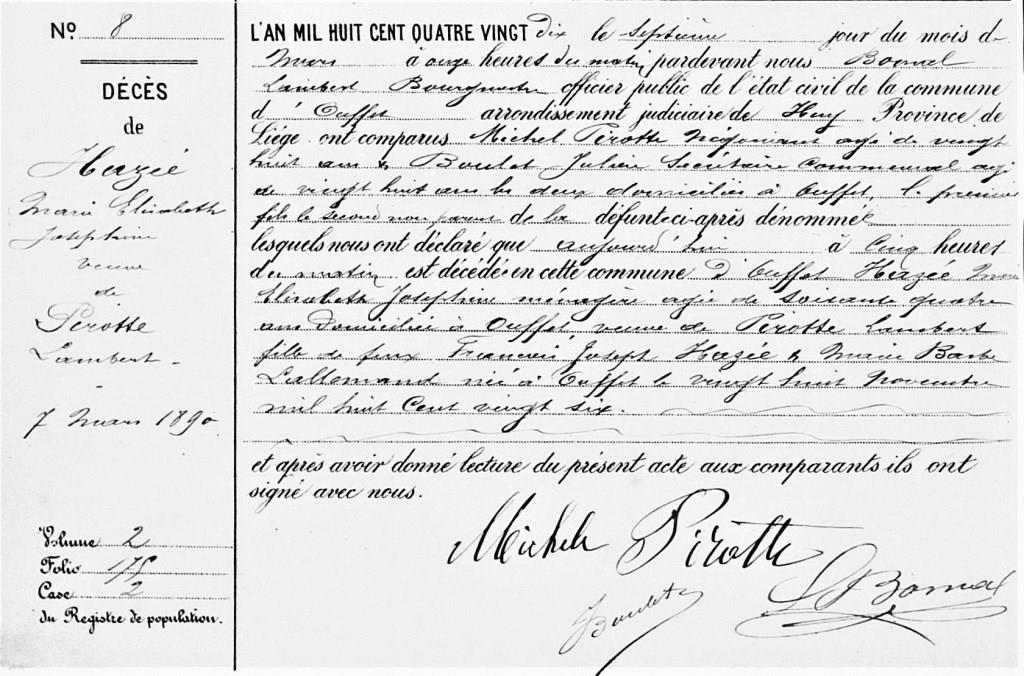 No 8
DÉCÈS
de
Hazée
Marie Elisabeth
Joséphine
veuve
de
Pirotte
Lambert -
7 Mars 1890
Volume 2
Folio 175
Case 2
du Registre de population.
L'AN MIL HUIT CENT QUATRE VINGT dix le septième jour du mois de
Mars à onze heures du matin pardevant nous Bornal
Lambert Bourgmestre officier public de l'état civil de la commune
d' Ouffet arrondissement judiciaire de Huy Province de
Liége ont comparus Michel Pirotte Négociant agé de vingt
huit ans & Boulet Julien Secrétaire communal agé
de vingt huit ans les deux domiciliés à Ouffet, le premier
fils le second non parent de la défunte ci-après dénommée
lesquels nous ont déclaré que aujourd'hui à cinq heures
du matin est décédée en cette commune d'Ouffet Hazée Marie
Elisabeth Joséphine ménagère agée de soixante quatre
ans domiciliée à Ouffet, veuve de Pirotte Lambert
fille de feux François Joseph Hazée & Marie Barbe
Lallemand née à Ouffet le vingt huit Novembre
mil huit Cent vingt six.
et après avoir donné lecture du présent acte aux comparants ils ont
signé avec nous.
Michel Pirotte
J Boulet
L Bornal